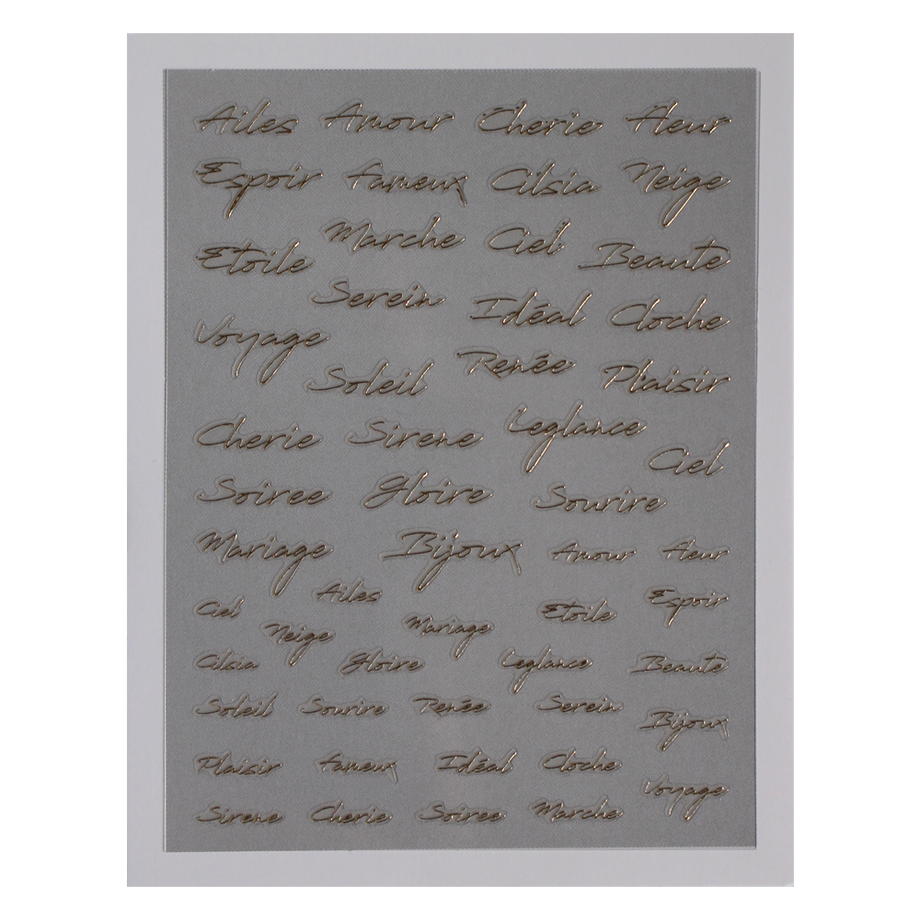 Ailes Amour Cherie fleur
Espoir fameux Cilsia Neige
Marche Ciel
Etoile Beaute
Serein Idéal Cloche
Voyage
Soleil Renée Plaisir
Cherie Sirene Leglance
Ciel
Soiree Gloire Sourire
Mariage Bijoux Amour fleur
Ciel Ailes Etoile Espoir
Neige Mariage
Cilsia Gloire Leglance Beaute
Soleil Sourire Renée Serein
Bijoux
Plaisir fameux Idéal Cloche
Voyage
Sirene Cherie Soiree Marche